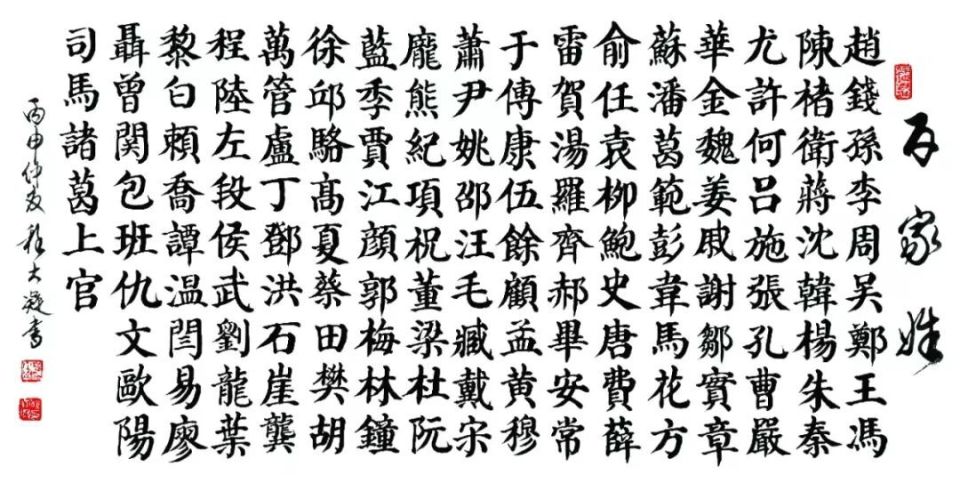 百家姓
趙錢孫李周吳鄭王馮
陳楮衛蔣沈韓楊朱秦
尤許何呂施張孔曹嚴
華金魏姜戚謝鄒實章
蘇潘葛範彭韋馬花方
俞任袁柳鮑史唐費薛
雷賀湯羅齊郝畢安常
于傅康伍餘顧孟黃穆
蕭尹姚邵汪毛臧戴宋
龐熊紀項祝董梁杜阮
藍季賈江顏郭梅林鐘
徐邱駱髙夏蔡田樊胡
萬管盧丁鄧洪石崖龔
程陸左段侯武劉龍葉
黎白賴喬譚温閆易廖
聶曾関包班仇文歐陽
司馬諸葛上官
丙申仲夏大凝書